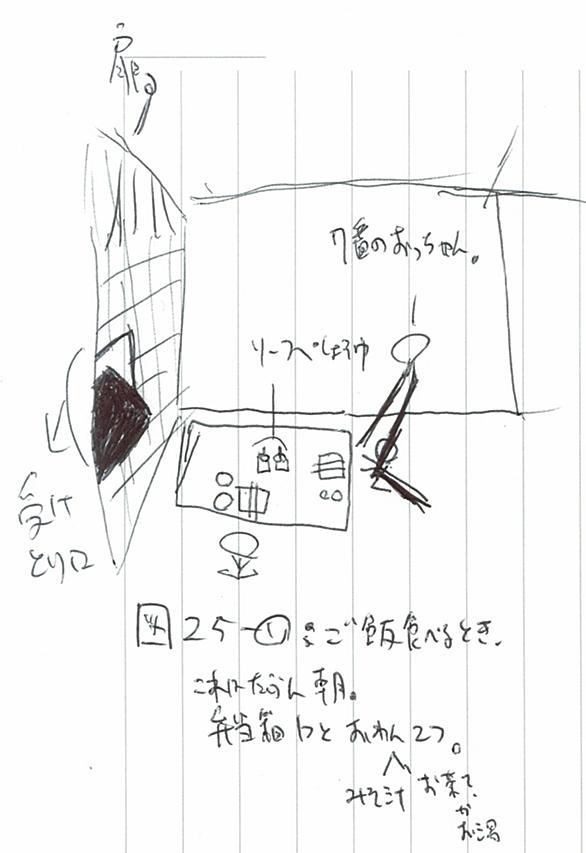 扉
7番のおっちゃん。
ソースとしょうゆ
受け
とり口
図25-①：ご飯食べるとき。
これはたぶん朝。
弁当箱1つとおわん2つ。
みそ汁
お茶
か
お湯